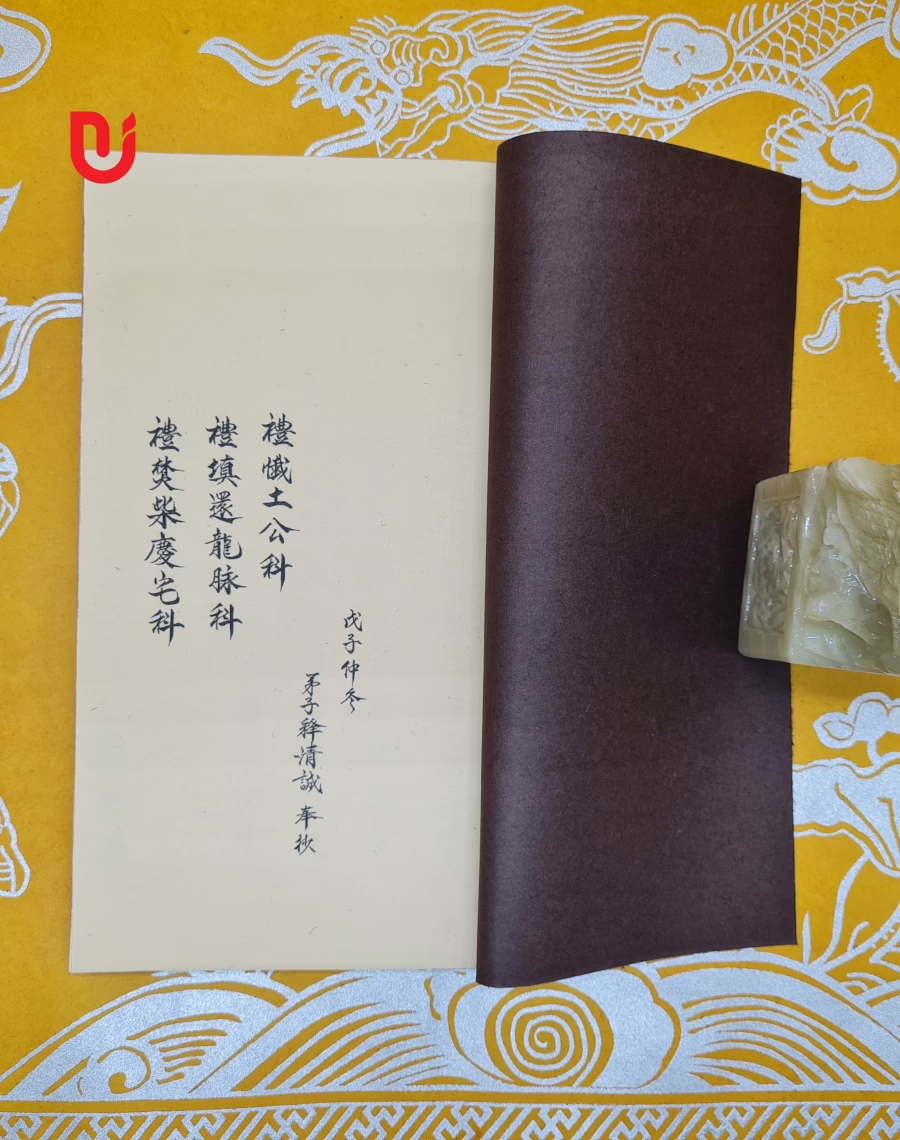 戊子仲冬
弟子释清誠 奉抄
禮懺土公科
禮填還龍脉科
禮焚柴慶宅科